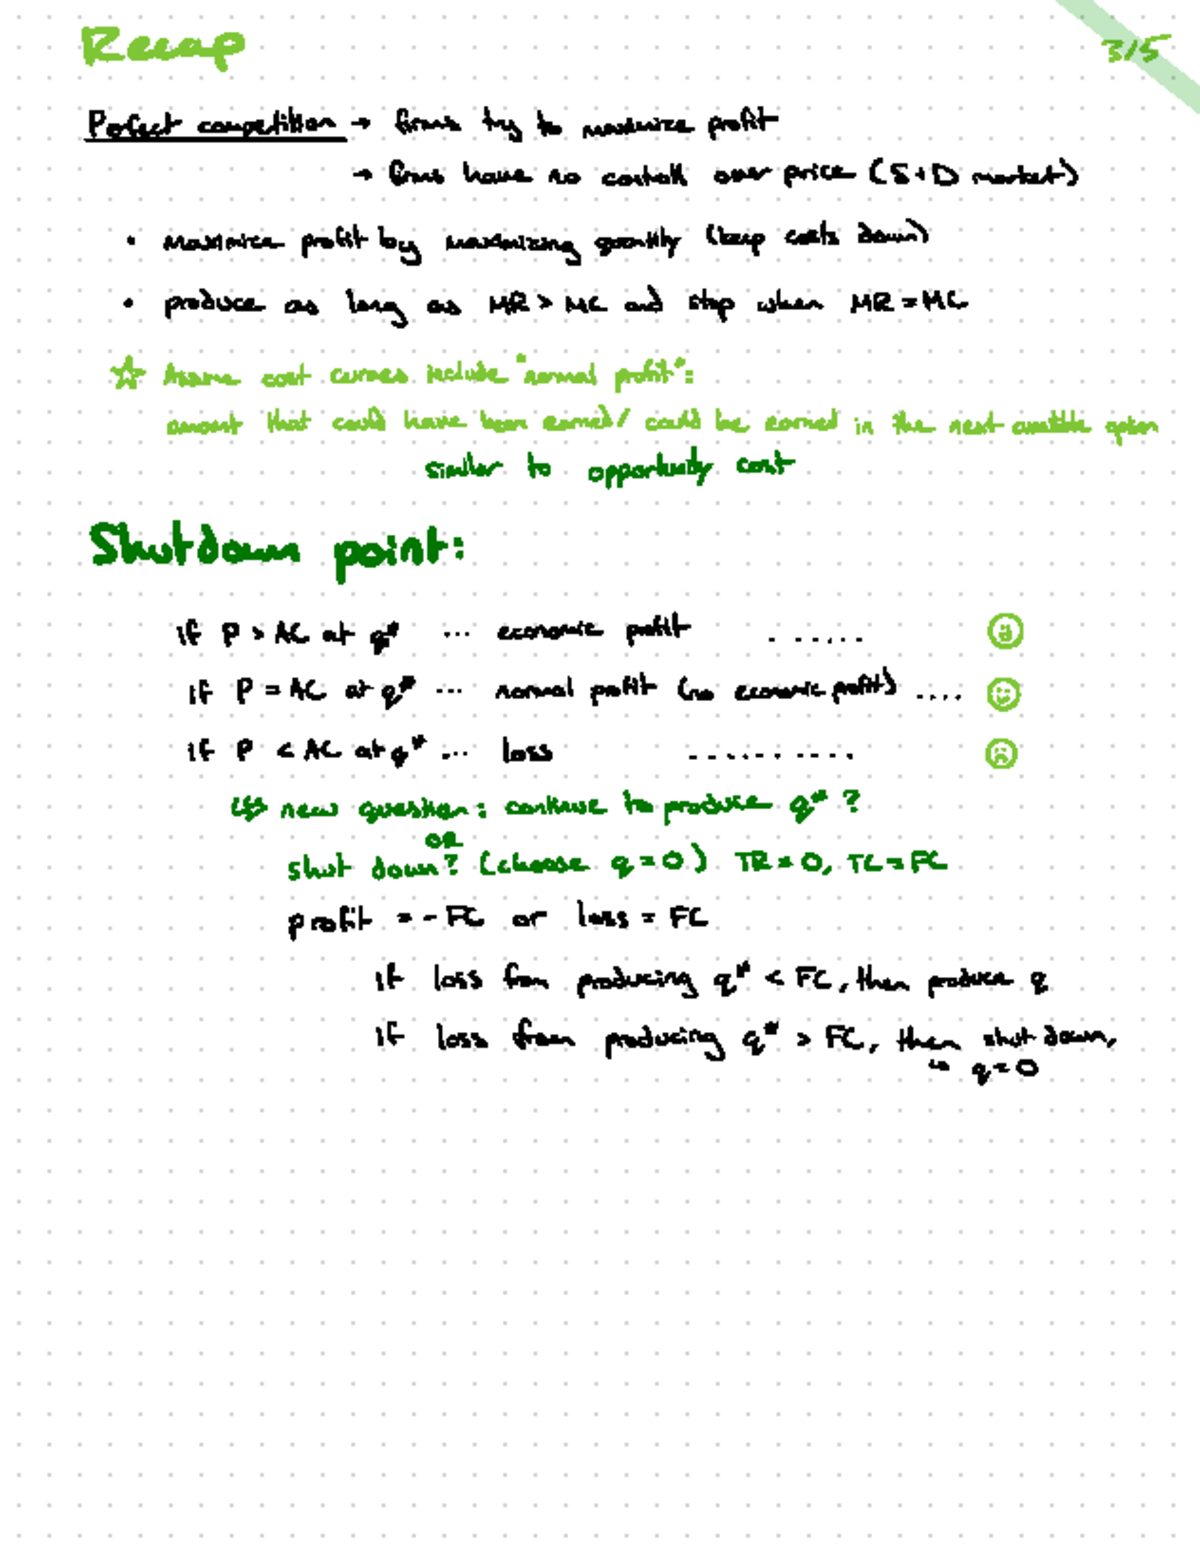 Recap
3/5
Perfect competition → firms try to maximize profit
→ firms have no controll over price (S+D market)
• maximize profit by maximizing quantity (keep costs down)
• produce as long as MR > MC and stop when MR = MC
☆ Assume cost curves include "normal profit":
amount that could have been earned/ could be earned in the next available option
similar to opportunity cost
Shutdown point:
if P > AC at q* ... economic profit ......
if P = AC at q* ... normal profit (no economic profit) ....
if P < AC at q* ... loss ..........
↳ new question: continue to produce q* ?
OR
shut down? (choose q = 0) TR = 0, TC = FC
profit = - FC or loss = FC
if loss from producing q* < FC, then produce q
if loss from producing q* > FC, then shut down,
↳ q = 0